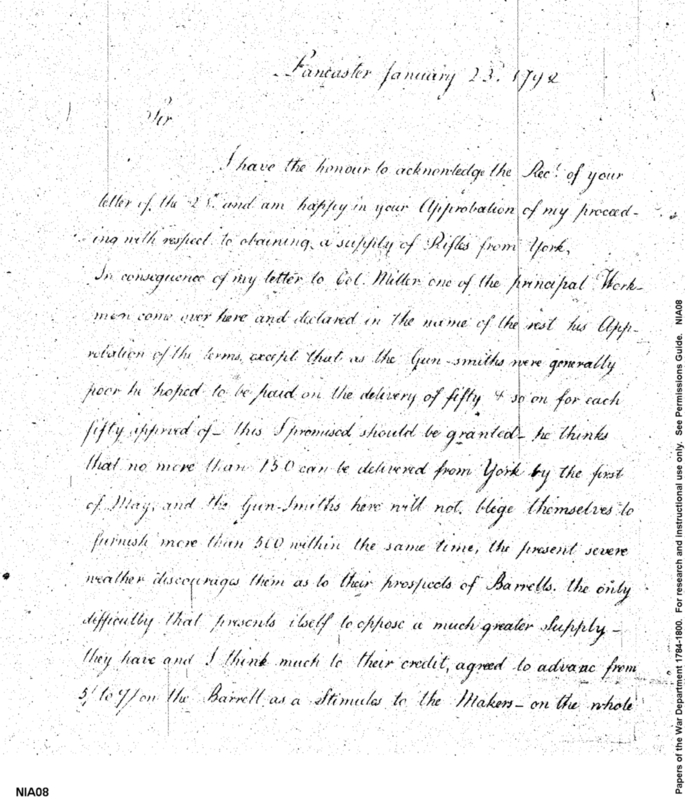 Lancaster January 23d. 1792
Sir
I have the honour to acknowledge the Rect. of your
letter of the and am happy in your Approbation of my proceed-
ing with respect to obtaining a supply of Rifles from York.
In consequence of my letter to Col. Miller one of the principal Work-
men came over here and declared in the name of the rest his App-
robation of the terms, except that as the Gun-smiths were generally
poor he hoped to be paid on the delivery of fifty & so on for each
fifty approved of – this I promised should be granted – he thinks
that no more than 150 can be delivered from York by the first
of May, and the Gun-Smiths here will not blege themselves to
furnish more than 500 within the same time, the present severe
weather discourages them as to their prospects of Barrells. the only
difficulty that presents itself to oppose a much greater Supply –
they have and I think much to their credit, agreed to advanc from
5/ to 7/ on the Barrell as a Stimules to the Makers – on the whole
NIA08
Papers of the War Department 1784-1800. For research and instructional use only. See Permissions Guide. NIA08